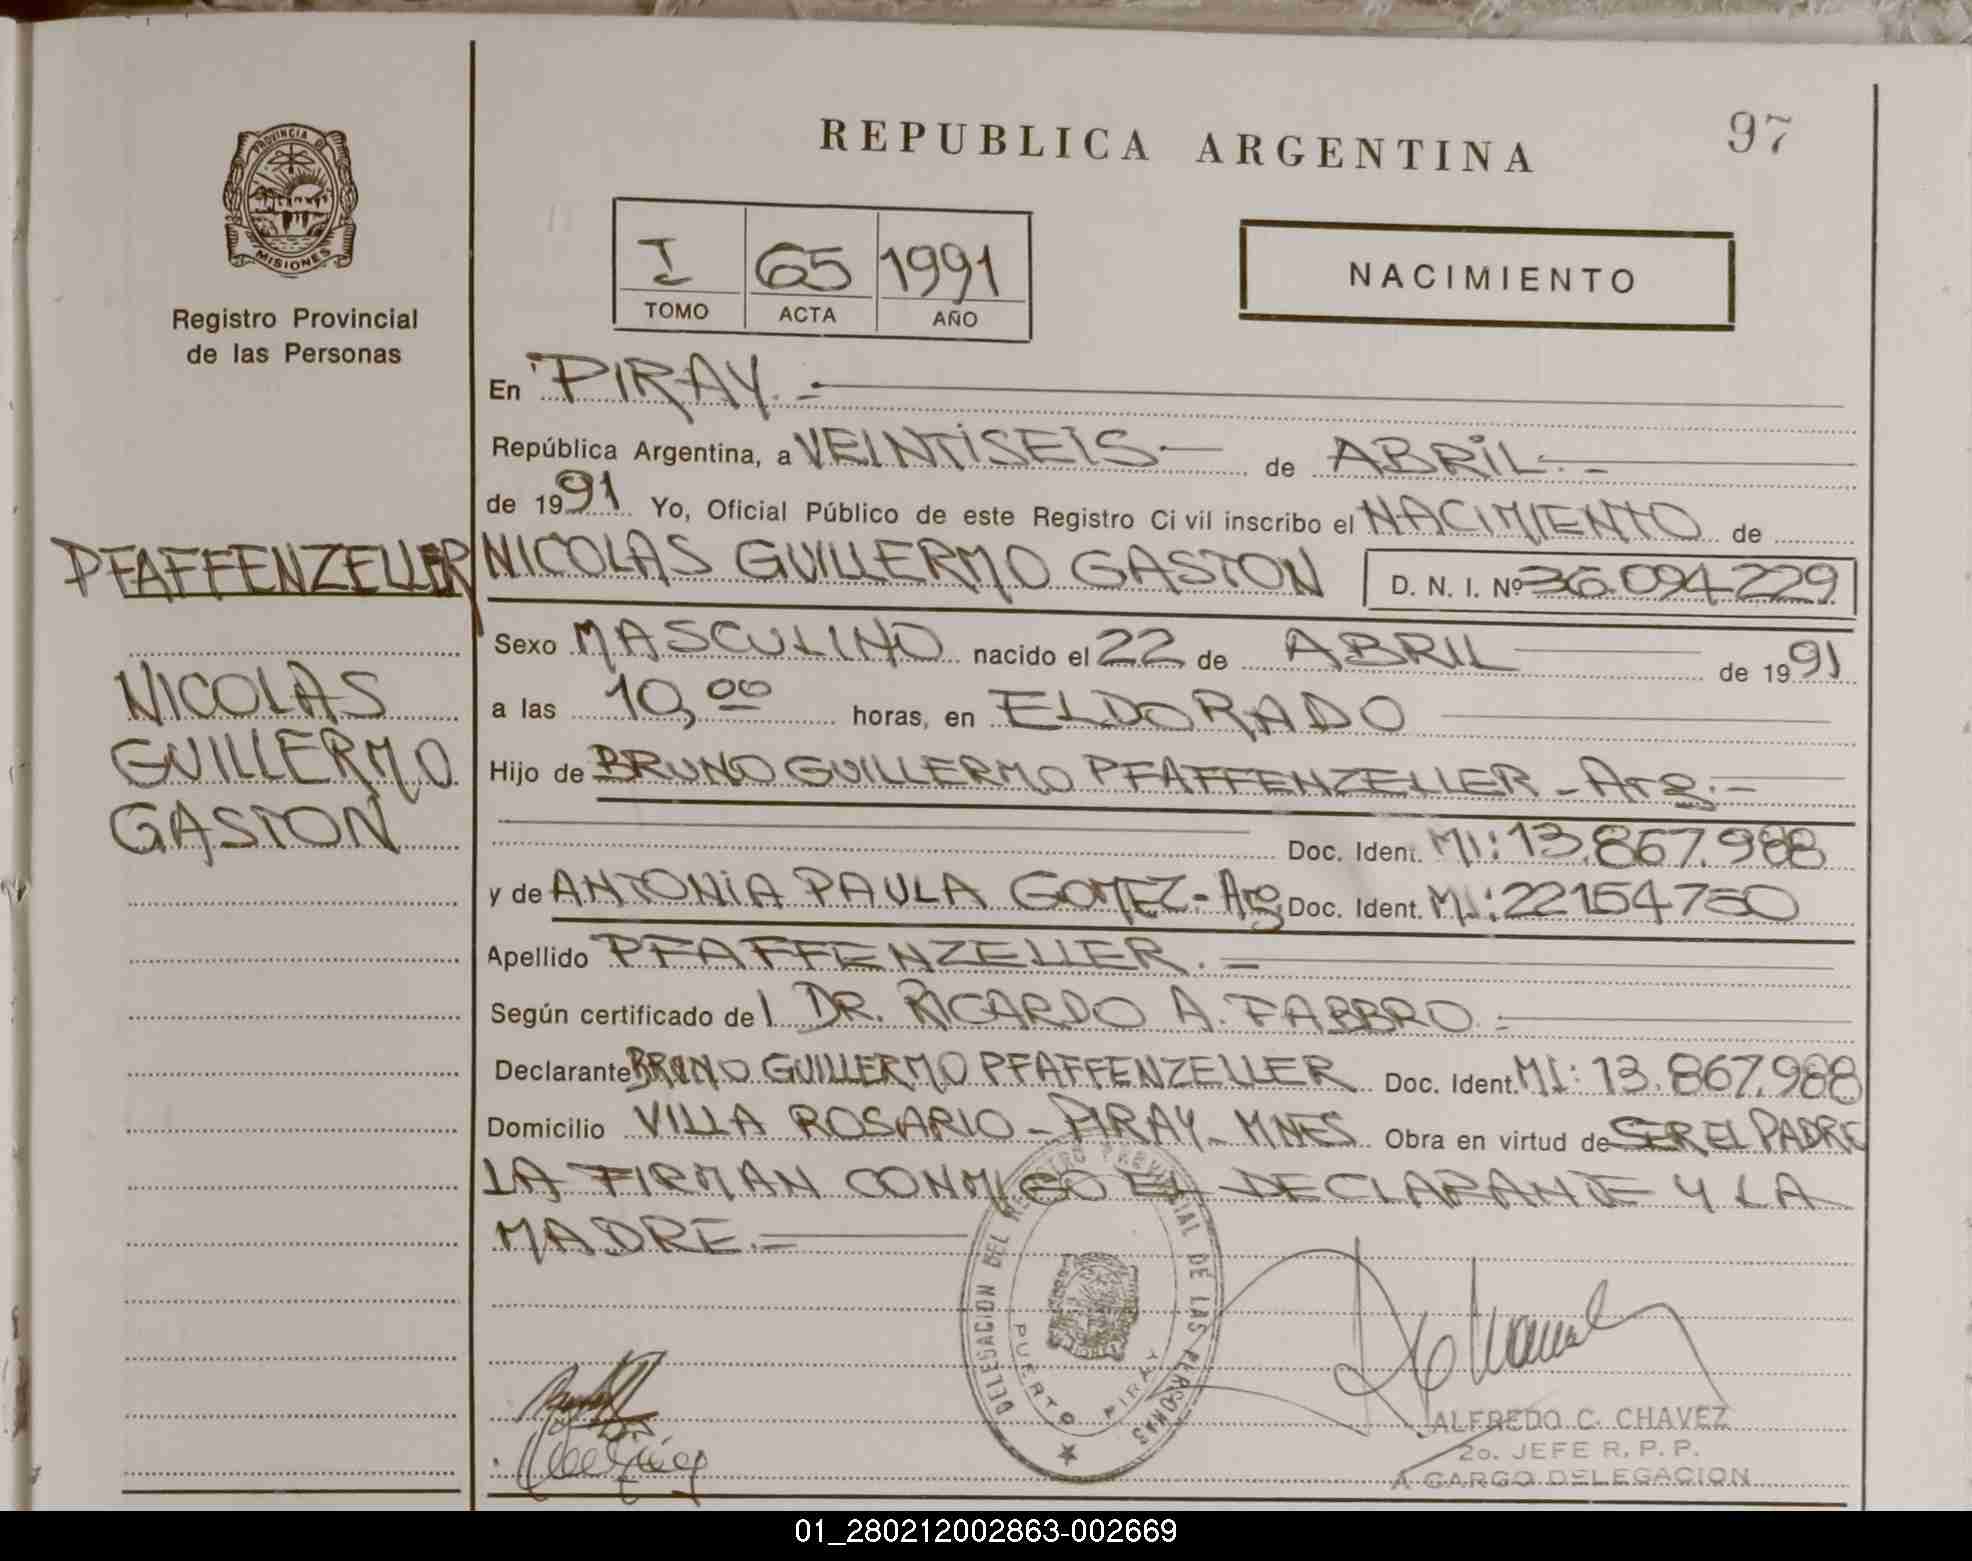 REPUBLICA ARGENTINA
97
PROVINCIA DE
MISIONES
Registro Provincial
de las Personas
I 65 1991
TOMO ACTA AÑO
NACIMIENTO
En PIRAY.-
República Argentina, a VEINTISEIS- de ABRIL.-
de 1991 Yo, Oficial Público de este Registro Civil inscribo el NACIMIENTO de
PFAFFENZELLER NICOLAS GUILLERMO GASTON D. N. I. Nº 36.094.229
Sexo MASCULINO nacido el 22 de ABRIL de 1991
NICOLAS
GUILLERMO
GASTON
a las 10,00 horas, en ELDORADO
Hijo de BRUNO GUILLERMO PFAFFENZELLER - Arg.-
Doc. Ident. MI: 13.867.988
y de ANTONIA PAULA GOMEZ - Arg Doc. Ident. M.I: 22154750
Apellido PFAFFENZELLER.-
Según certificado del DR. RICARDO A. FABBRO.-
Declarante BRUNO GUILLERMO PFAFFENZELLER Doc. Ident. MI: 13.867.988
Domicilio VILLA ROSARIO - PIRAY - MNES Obra en virtud de SER EL PADRE
LA FIRMAN CONMIGO EL DECLARANTE Y LA
MADRE.-
DELEGACION DEL REGISTRO PROVINCIAL DE LAS PERSONAS
PUERTO PIRAY
ALFREDO C. CHAVEZ
2o. JEFE R. P. P.
A CARGO DELEGACION
01_280212002863-002669